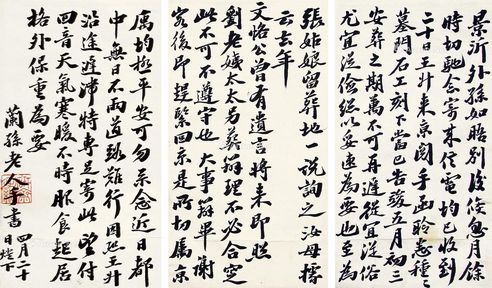 景沂外孫如晤別後倏忽月餘
時切馳念寄來信電均已收到
二十日王升來京閱手函聆悉種種
墓門石工刻下當已告竣五月初三
安葬之期萬不可再遲從宜從俗
尤宜從儉總以妥速為要也至為
張姑娘留葬地一說詢之汝母據
云去年
文恪公曾有遺言將來即照
劉老姨太太易簀辦理不必合窆
此不可不遵守也大事辦畢謝
客後即趕緊回京是所切屬京
寓均極平安可勿系念近日都
中無日不雨道路難行因恐王升
沿途遲滯特專足寄此望付
回音天氣寒暖不時眠食起居
格外保重為要
蘭孫老人手書
四月二十
日燈下